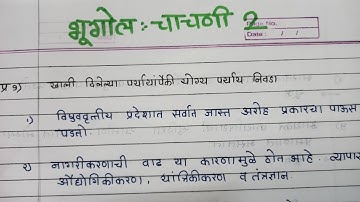 भूगोल :- चाचणी 2
Date : / /
प्र १) खाली दिलेल्या पर्यायांपैकी योग्य पर्याय निवडा
१) विषुववृत्तीय प्रदेशात सर्वात जास्त अरोह प्रकारचा पाऊस
पडतो.
२) नागरीकरणाची वाढ या कारणामुळे होत आहे. व्यापार
औद्योगिकीकरण, यांत्रिकीकरण व तंत्रज्ञान